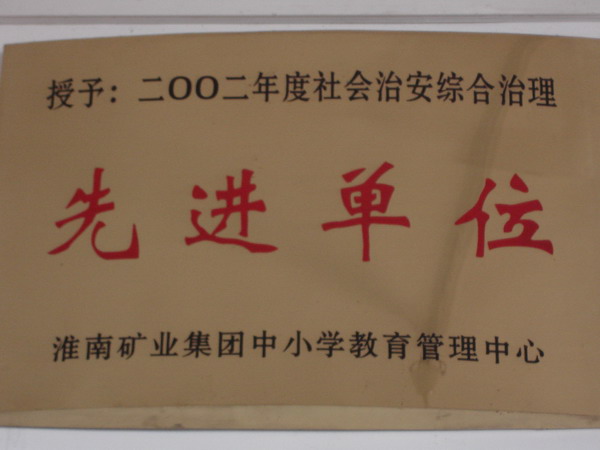 授予：二〇〇二年度社会治安综合治理
先进单位
淮南矿业集团中小学教育管理中心